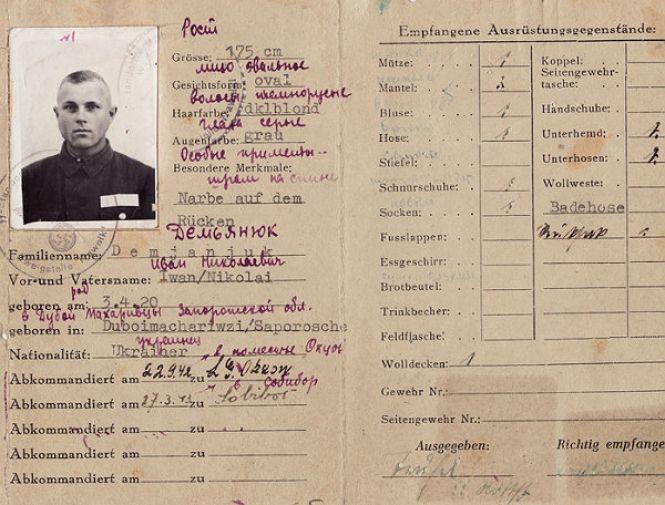 №1
Рост
Grösse: 175 cm
лицо овальное
Gesichtsform: oval
волосы темнорусые
Haarfarbe: dklblond
глаза серые
Augenfarbe: grau
Особые приметы-
Besondere Merkmale:
шрам на спине
Narbe auf dem
Rücken
Демьянюк
Familienname: Demjanjuk
Иван Николаевич
Vor-und Vatersname: Iwan/Nikolai
род
geboren am: 3.4.20
в Дубой Махаривцы Запорожской обл.
geboren in: Duboimachariwzi/Saporosche
украинец
Nationalität: Ukrainer
в поместье Окцов
Abkommandiert am 22.9.42 zu L.G. Okzow
в собибор
Abkommandiert am 27.3.43 zu Sobibor
Abkommandiert am zu
Abkommandiert am zu
Abkommandiert am zu
Empfangene Ausrüstungsgegenstände:
Mütze: 1
Mantel:
Bluse: 1
Hose: 1
Stiefel:
Schnurschuhe: 1
Socken: 1
Fusslappen:
Essgeschirr:
Brotbeutel:
Trinkbecher:
Feldflasche:
Wolldecken: 1
Koppel:
Seitengewehr-
tasche:
Handschuhe:
Unterhemd:
Unterhosen:
Wollweste:
Badehose
Rucksack
Gewehr Nr.:
Seitengewehr Nr.:
Ausgegeben:
Richtig empfange